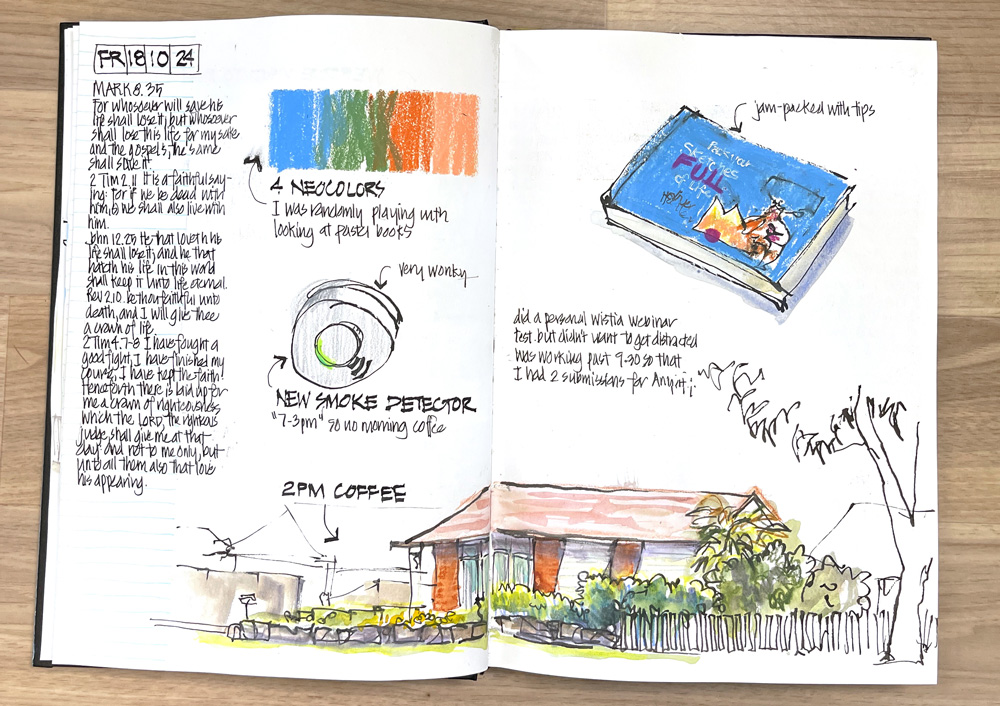 FR 18 10 24
MARK 8.35
For whosoever will save his
life shall lose it, but whosoever
shall lose this life for my sake
and the gospels, the same
shall save it.
2 Tim 2.11 It is a faithful say-
ing: for if we be dead with
him, we shall also live with
him.
John 12.25 He that loveth his
life shall lose it, and he that
hateth his life in this world
shall keep it unto life eternal.
Rev 2.10. be thou faithful unto
death, and I will give thee
a crown of life.
2 Tim 4.7-8 I have fought a
good fight, I have finished my
course, I have kept the faith:
Henceforth there is laid up for
me a crown of righteousness
which the LORD, the righteous
judge, shall give me at that
day: and not to me only, but
unto all them also that love
his appearing.
4 NEOCOLORS
I was randomly playing with
looking at pastel books
very wonky
NEW SMOKE DETECTOR
"7-3pm" so no morning coffee
2PM COFFEE
jam-packed with tips
Pack your
Sketches
FULL
of Life
did a personal Wistia Webinar
test. but didn't want to get distracted
was working past 9-30 so that
I had 2 submissions for